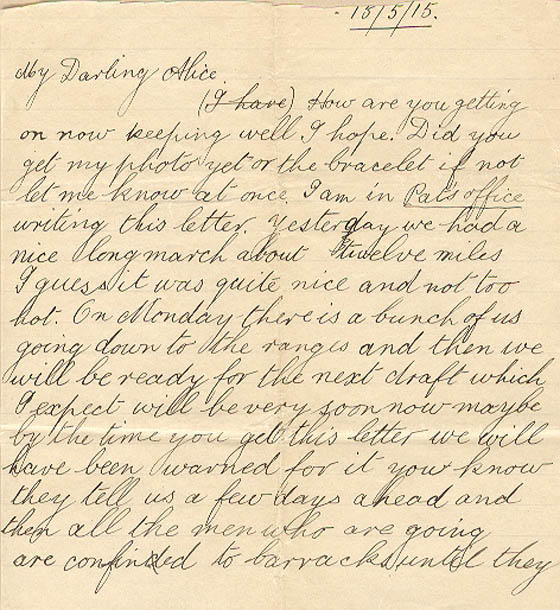 15/5/15.
My Darling Alice
(I have) How are you getting
on now keeping well I hope. Did you
get my photo yet or the bracelet if not
let me know at once. I am in Pat's office
writing this letter. Yesterday we had a
nice long march about twelve miles
I guess it was quite nice and not too
hot. On Monday there is a bunch of us
going down to the ranges and then we
will be ready for the next draft which
I expect will be very soon now maybe
by the time you get this letter we will
have been warned for it you know
they tell us a few days ahead and
then all the men who are going
are confined to barracks until they